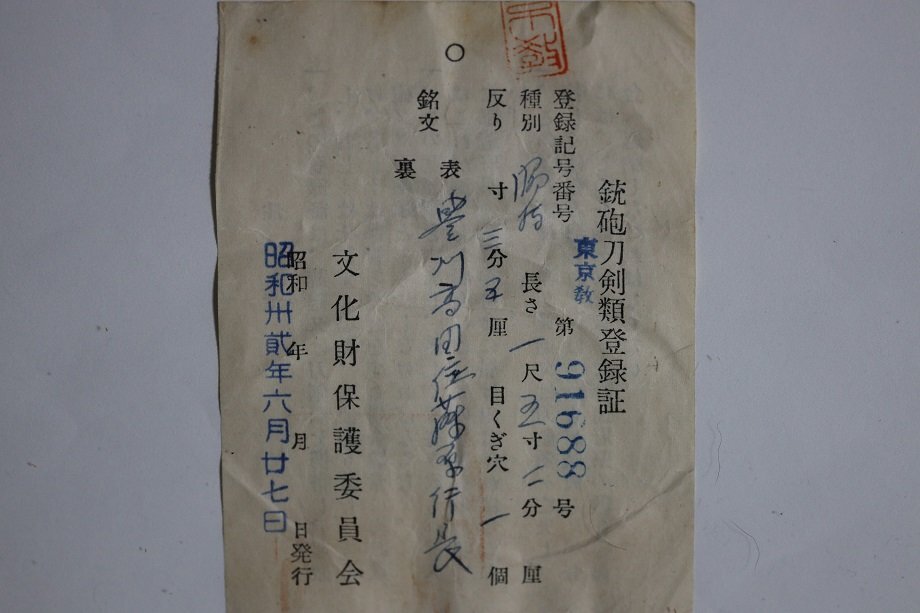 銃砲刀剣類登録証
登録記号番号 東京教 第 91688 号
種別 脇指 長さ 一尺五寸二分 厘
反り 寸三分五厘 目くぎ穴 一個
銘文 表 豊州高田住藤原行長
裏
文化財保護委員会
昭和 年 月 日発行
昭和卅貳年六月廿七日